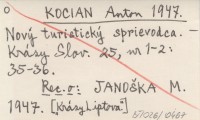 o KOCIAN Anton 1947.
Nový turistický sprievodca. -
Krásy Slov. 25, nr 1-2:
35-36.
Rec. o: JANOŠKA M.
1947. [Krásy Liptova]